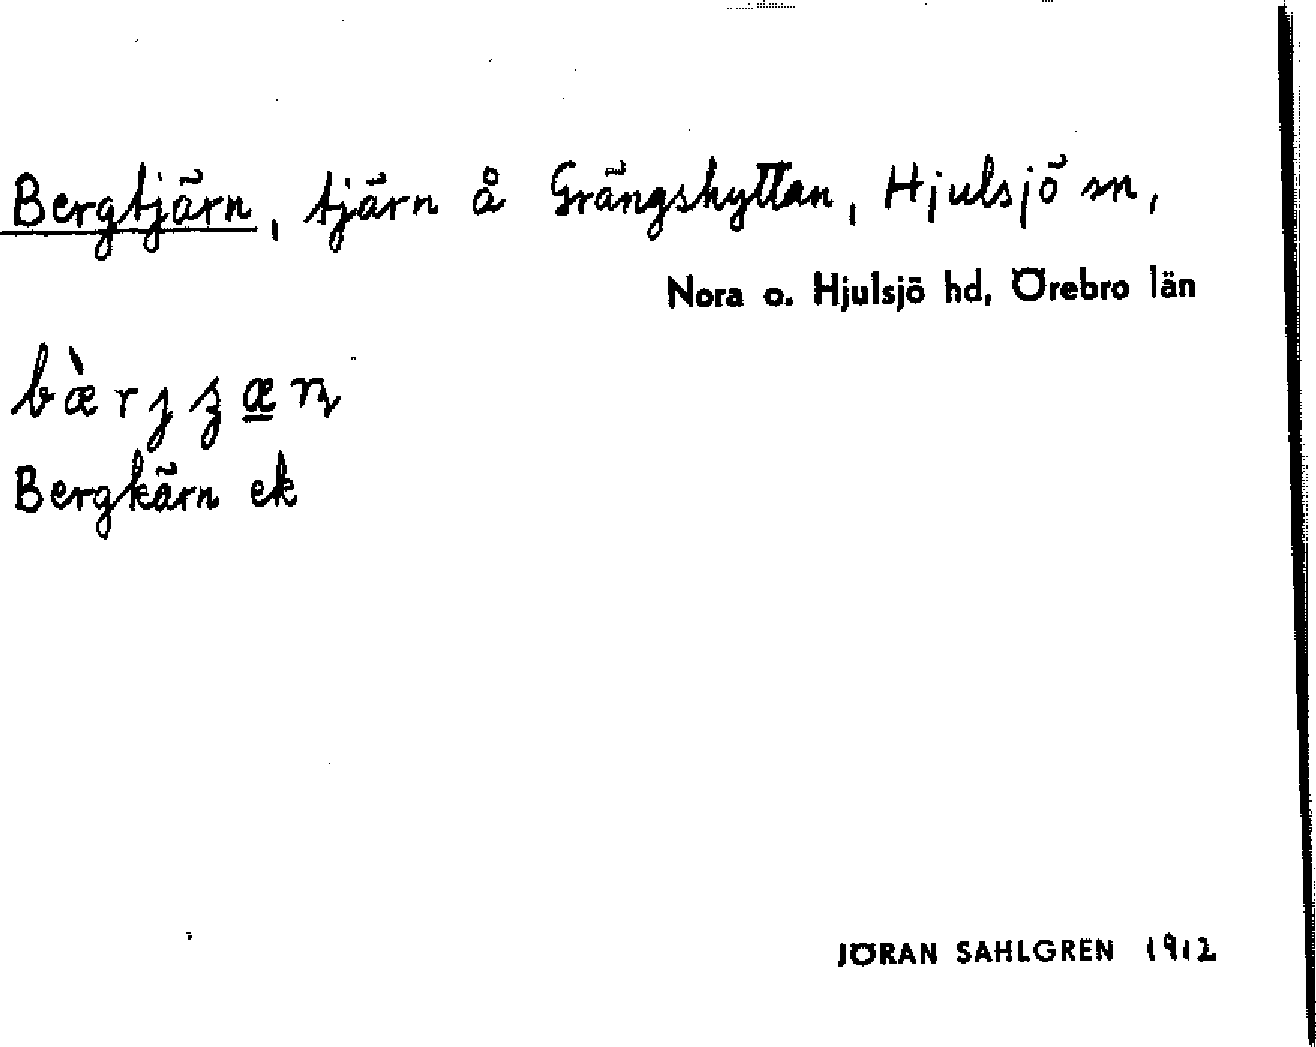 Bergtjärn, tjärn å Grängshyttan, Hjulsjö sn,
Nora o. Hjulsjö hd, Örebro län
Bergkärn ek
JÖRAN SAHLGREN 1912